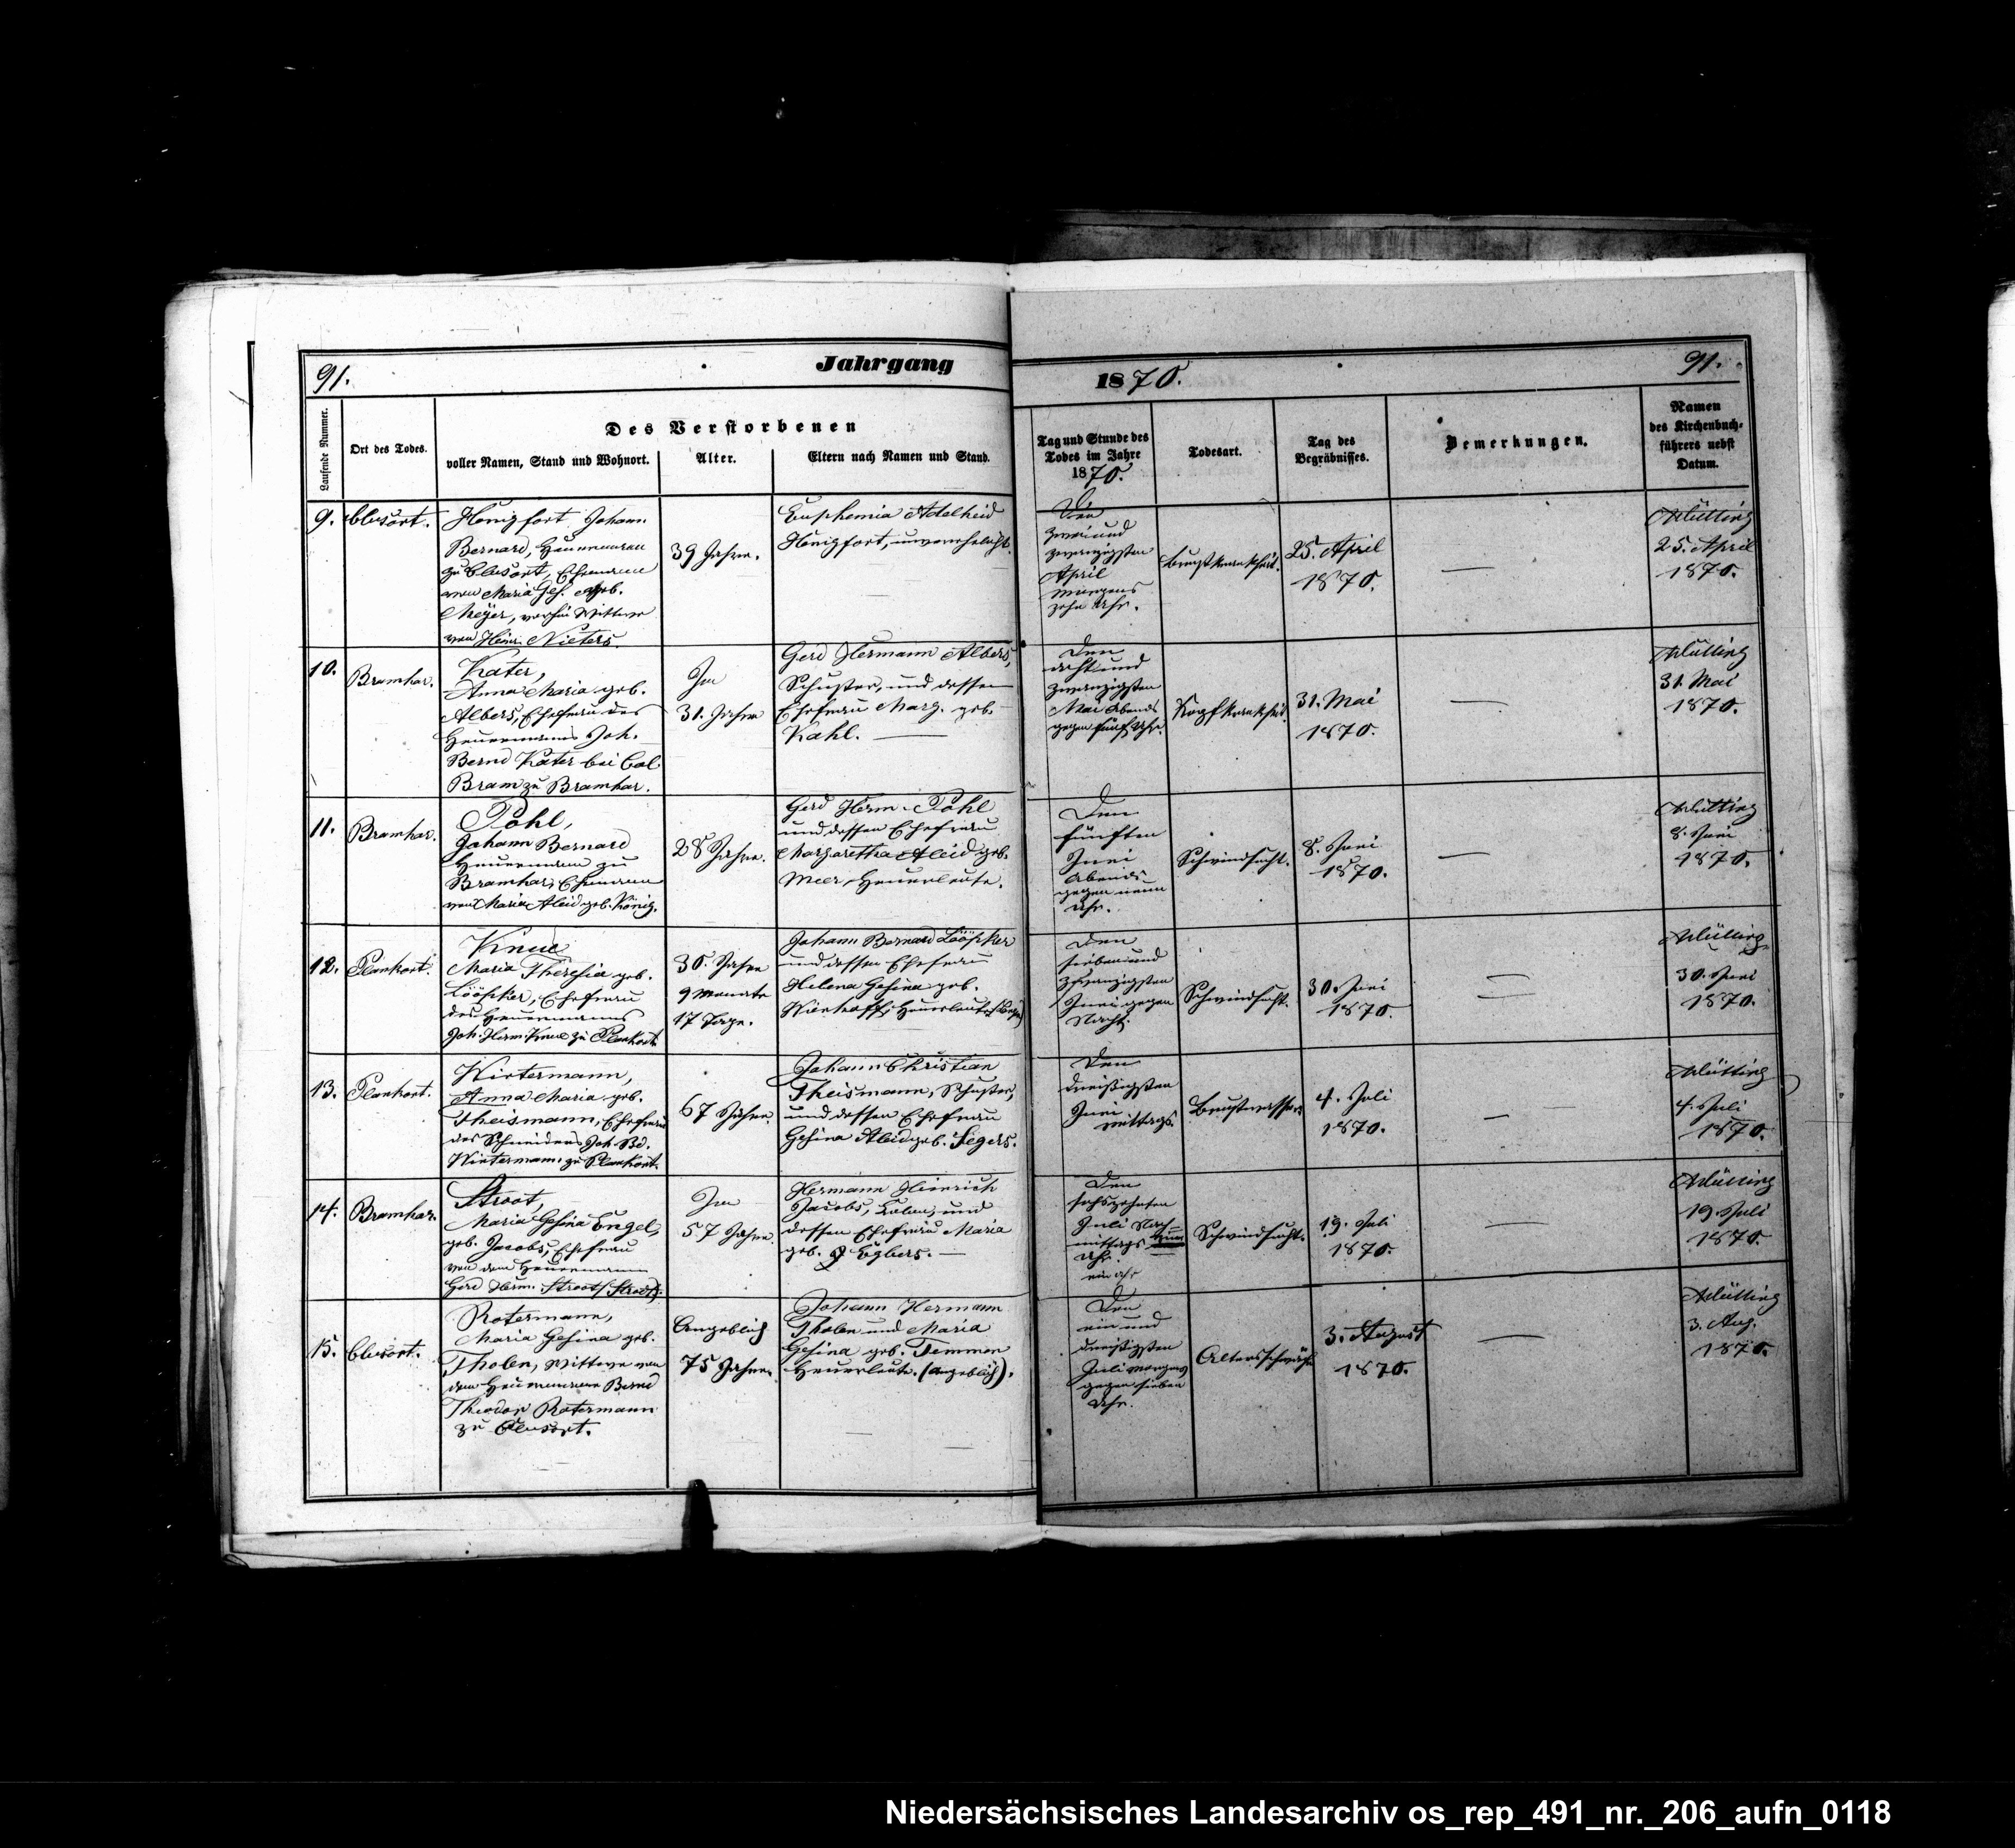 91.
Jahrgang
1870.
91.
Laufende Nummer.
Ort des Todes.
Des Verstorbenen
voller Namen, Stand und Wohnort.
Alter.
Eltern nach Namen und Stand.
Tag und Stunde des
Todes im Jahre
1870.
Todesart.
Tag des
Begräbnisses.
Bemerkungen.
Namen
des Kirchenbuch-
führers nebst
Datum.
9.
Clusort.
Honigfort Johann
Bernard, Heuermann
zu Clusort, Ehemann
von Maria Ges. geb.
Meyer, vorhin Wittwe
von Heinr. Nieters.
39 Jahre.
Euphemia Adelheid
Honigfort, unverehelicht.
Den
zweiund
zwanzigsten
April
Morgens
zehn Uhr.
Brustkrankheit.
25. April
1870.
25. April
1870.
10.
Bramhar.
Kater,
Anna Maria geb.
Albers, Ehefrau des
Heuermanns Joh.
Bernd Kater bei Col.
Bram zu Bramhar.
Im
31. Jahre
Gerd Hermann Albers,
Schuster, und dessen
Ehefrau Marg. geb.
Kahl.
Den
acht und
zwanzigsten
Mai Abends
gegen fünf Uhr.
Kopfkrankheit.
31. Mai
1870.
31. Mai
1870.
11.
Bramhar.
Pohl,
Johann Bernard
Heuermann zu
Bramhar, Ehemann
von Maria Aleid geb. König.
28 Jahre.
Gerd Herm. Pohl
und dessen Ehefrau
Margaretha Aleid geb.
Meer, Heuerleute.
Den
fünften
Juni
Abends
gegen neun
Uhr.
Schwindsucht.
8. Juni
1870.
8. Juni
1870.
12.
Plankort.
Knue
Maria Theresia geb.
Lööpker, Ehefrau
des Heuermanns
Joh. Herm. Knue zu Plankort
30. Jahre
9 Monate
17 Tage.
Johann Bernard Lööpker
und dessen Ehefrau
Helena Gesina geb.
Heuerleute
Den
sieben und
zwanzigsten
Juni gegen
Nacht.
Schwindsucht.
30. Juni
1870.
30. Juni
1870.
13.
Plankort.
Wirtermann,
Anna Maria geb.
Theismann, Ehefrau
des Schneiders Joh. Bd.
Wirtermann zu Plankort.
67 Jahre.
Johann Christian
Theismann, Schuster,
und dessen Ehefrau
Gesina Aleid geb. Siegers.
Den
dreißigsten
Juni
mittags.
4. Juli
1870.
4. Juli
1870.
14.
Bramhar.
Stroot,
Maria Gesina Engel,
geb. Jacobs, Ehefrau
von dem Heuermann
Gerd Herm. Stroot (Stroot).
Im
57 Jahre.
Hermann Heinrich
Jacobs, und
dessen Ehefrau Maria
geb. Egbers.
Den
sechszehnten
Juli Nach-
mittags
Uhr.
ein Uhr
Schwindsucht.
19. Juli
1870.
19. Juli
1870.
15.
Clusort.
Rotermann,
Maria Gesina geb.
Tholen, Wittwe von
dem Heuermann Bernd
Theodor Rotermann
zu Clusort.
Angeblich
75 Jahre.
Johann Hermann
Tholen und Maria
Gesina geb. Temmen
Heuerleute. (angeblich).
Den
ein und
dreißigsten
Juli Morgens
gegen sieben
Uhr.
Altersschwäche
3. August
1870.
3. Aug.
1870.
Niedersächsisches Landesarchiv os_rep_491_nr._206_aufn_0118